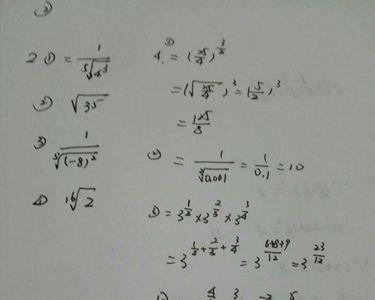 ②
2 ① = 1/⁵√4³
② √3⁵
③ 1/⁵√(-8)²
④ ¹⁶√2
4. ① = (25/4)^(3/2)
= (√25/4)³ = (5/2)³
= 125/8
② = 1/³√0.001 = 1/0.1 = 10
③ = 3^(1/2) × 3^(2/3) × 3^(3/4)
= 3^(1/2 + 2/3 + 3/4) = 3^((6+8+9)/12) = 3^(23/12)